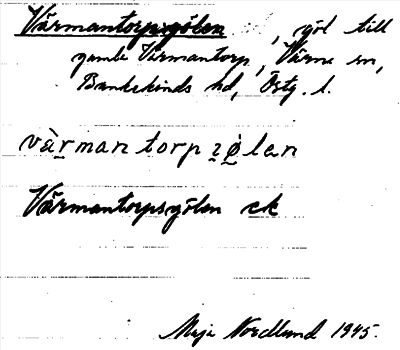 Värmantorpsgölen, göl till
gamla Värmantorp, Värna sn,
Bankekinds hd, Östg. l.
värmantorpsgölen
Värmantorpsgölen ek
Maja Nordlund 1945.